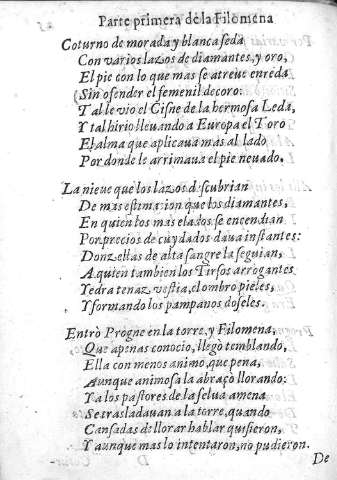 Parte primera de la Filomena
Coturno de morada y blanca seda
Con varios lazos de diamantes, y oro,
El pie con lo que mas se atreue enreda
(Sin ofender el femenil decoro:
Tal le vio el Cisne de la hermosa Leda,
Y tal hirio lleuando a Europa el Toro
El alma que aplicaua mas al lado
Por donde le arrimaua el pie neuado.
La nieue que los lazos descubrian
De mas estimacion que los diamantes,
En quien los mas elados se encendian
Pon precios de cuydados daua instantes:
Donzellas de alta sangre la seguian,
A quien tambien los Tirsos arrogantes
Yedra tenaz vestia, el ombro pieles,
Y formando los pampanos doseles.
Entrò Progne en la torre, y Filomena,
Que apenas conocio, llegò temblando,
Ella con menos animo, que pena,
Aunque animosa la abraçò llorando:
Ya los pastores de la selua amena
Se trasladauan a la torre, quando
Cansadas de llorar hablar quisieron,
Y aunque mas lo intentaron, no pudieron.
De